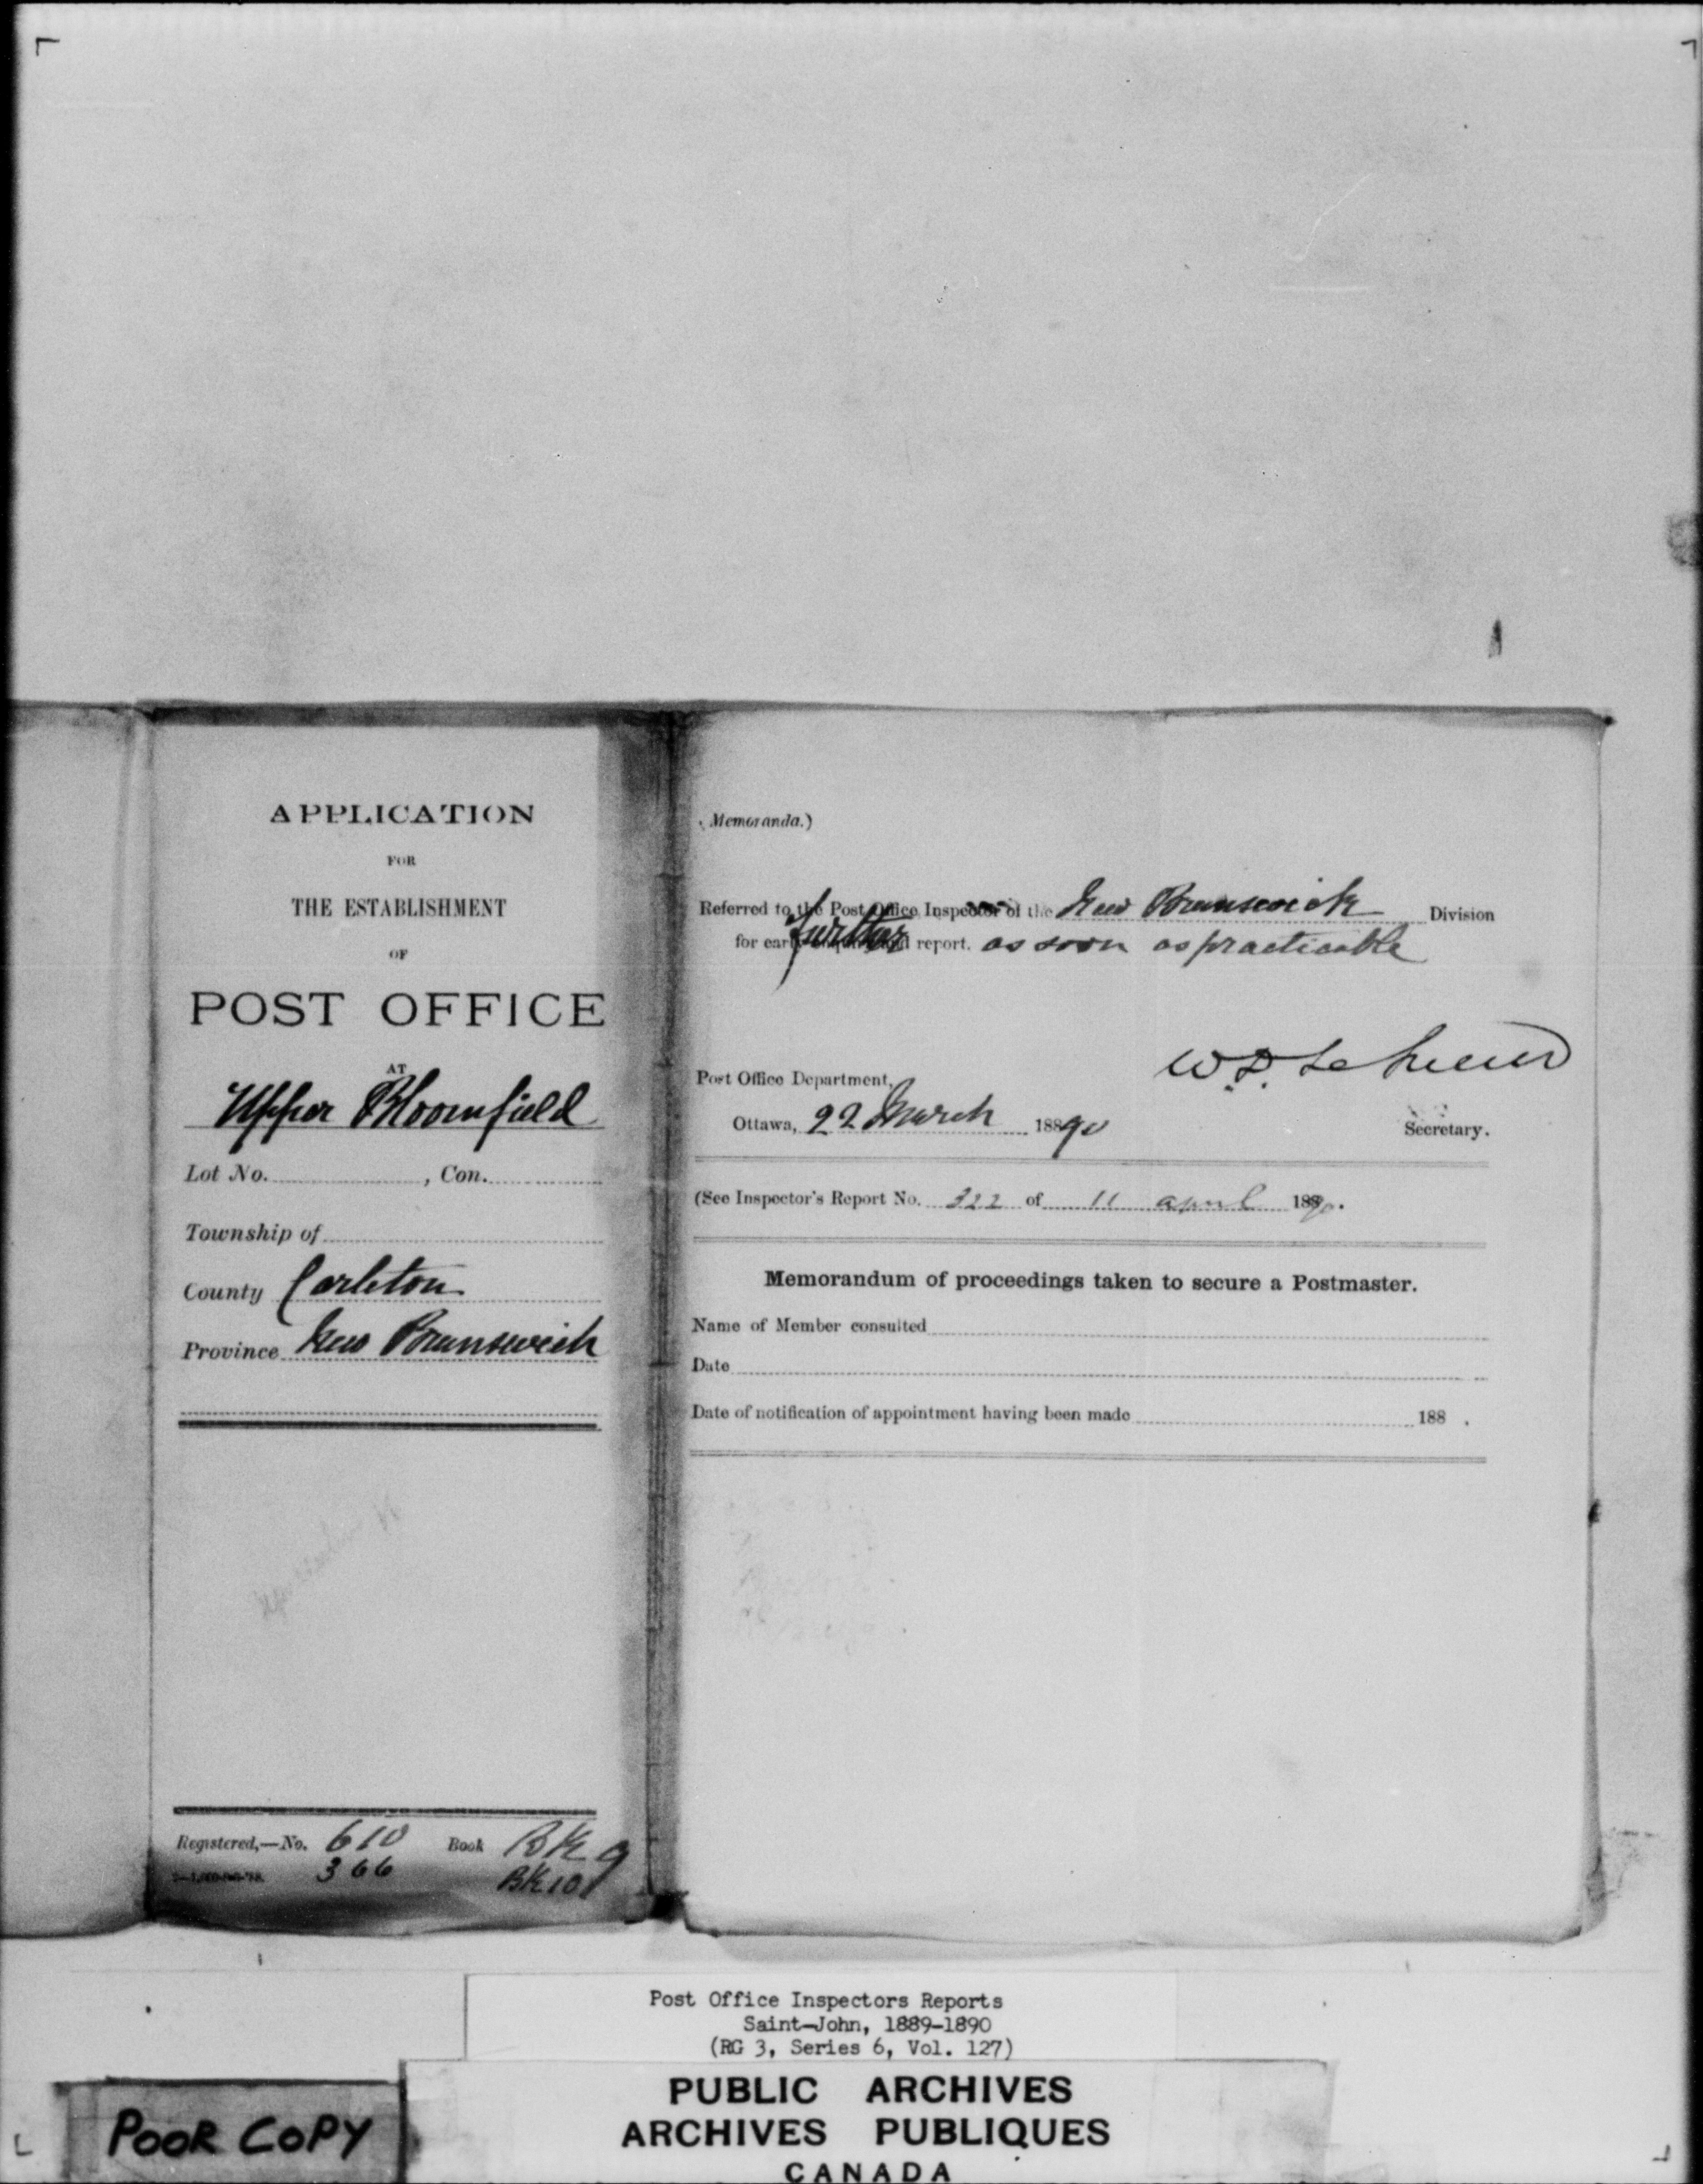 APPLICATION
FOR
THE ESTABLISHMENT
OF
POST OFFICE
AT
Upper Bloomfield
Lot No. , Con.
Township of
County Carleton
Province New Brunswick
Registered,—No. 610 Book Bk 9
366 Bk 10
(Memoranda.)
Referred to the Post Office Inspector of the New Brunswick Division
for early further report. as soon as practicable
W.D.
Post Office Department,
Ottawa, 22 March 1890
Secretary.
(See Inspector's Report No. 322 of 11 April 1890.
Memorandum of proceedings taken to secure a Postmaster.
Name of Member consulted
Date
Date of notification of appointment having been made 188 .
Post Office Inspectors Reports
Saint-John, 1889-1890
(RG 3, Series 6, Vol. 127)
PUBLIC ARCHIVES
ARCHIVES PUBLIQUES
CANADA
POOR COPY